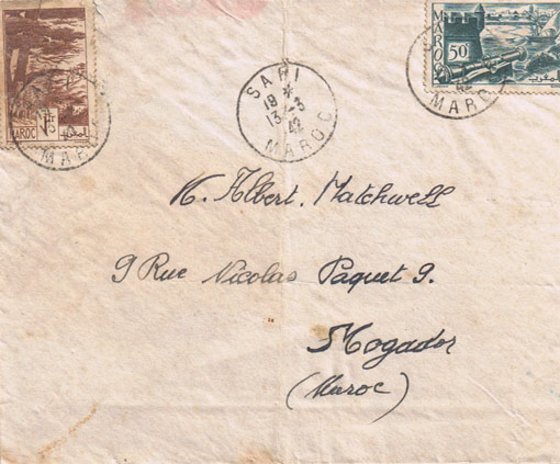 MAROC
1F
SAFI
19 *
13-3
42
MAROC
MAROC
50c
MAROC
M. Albert. Matchwell
9 Rue Nicolas Paquet 9.
Mogador
(Maroc)